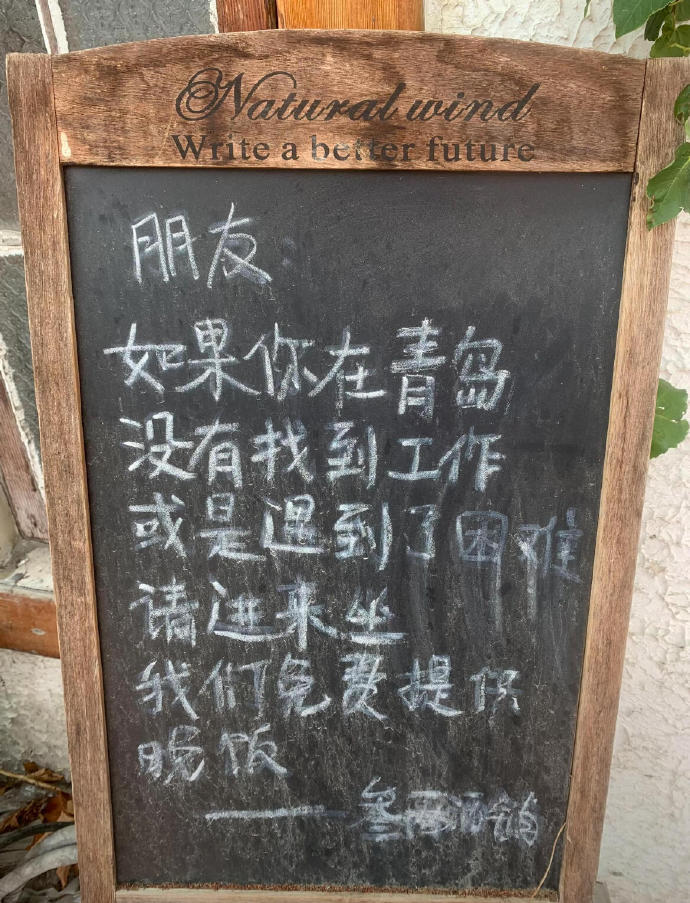 Natural wind
Write a better future
朋友:
如果你在青岛
没有找到工作
或是遇到了困难
请进来坐
我们免费提供
晚饭
——叁西酒铺